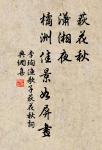 荻花秋
瀟湘夜
橘洲佳景如屏畫
李珣漁歌子荻花秋詞
典網集